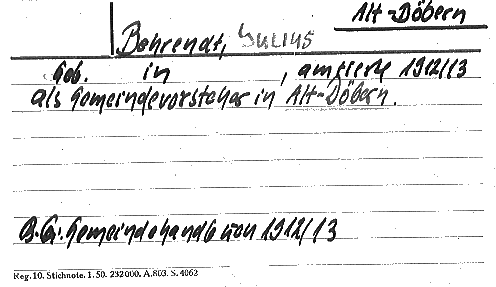 Alt-Döbern
Behrendt, Julius
Geb. in , amtierte 1912/13
als Gemeindevorsteher in Alt-Döbern.
Gemeinde von 1912/13
Reg. 10. Stichnote. 1. 50. 232000. A. 803. S. 4062